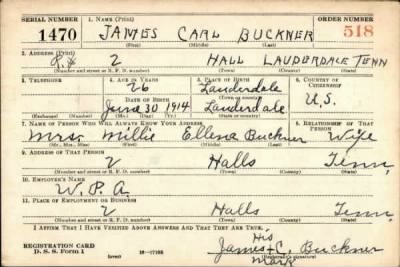 SERIAL NUMBER 1. NAME (Print) ORDER NUMBER
1470 JAMES CARL BUCKNER 518
(First) (Middle) (Last)
2. ADDRESS (Print)
R.# 2 HALL LAUDERDALE TENN
(Number and street or R. F. D. number) (Town) (County) (State)
3. TELEPHONE 4. AGE IN YEARS 5. PLACE OF BIRTH 6. COUNTRY OF CITIZENSHIP
26 Lauderdale
DATE OF BIRTH (Town or county)
June 30 1914 Lauderdale U.S.
(Exchange) (Number) (Mo.) (Day) (Yr.) (State or country)
7. NAME OF PERSON WHO WILL ALWAYS KNOW YOUR ADDRESS 8. RELATIONSHIP OF THAT PERSON
Mrs. Millie Ellene Buckner Wife
(Mr., Mrs., Miss) (First) (Middle) (Last)
9. ADDRESS OF THAT PERSON
2 Halls Tenn,
(Number and street or R. F. D. number) (Town) (County) (State)
10. EMPLOYER'S NAME
W.P.A.
11. PLACE OF EMPLOYMENT OR BUSINESS
2 Halls Tenn
(Number and street or R. F. D. number) (Town) (County) (State)
I AFFIRM THAT I HAVE VERIFIED ABOVE ANSWERS AND THAT THEY ARE TRUE.
His
REGISTRATION CARD James + C. Buckner
D. S. S. Form 1 (Registrant's signature)
Mark